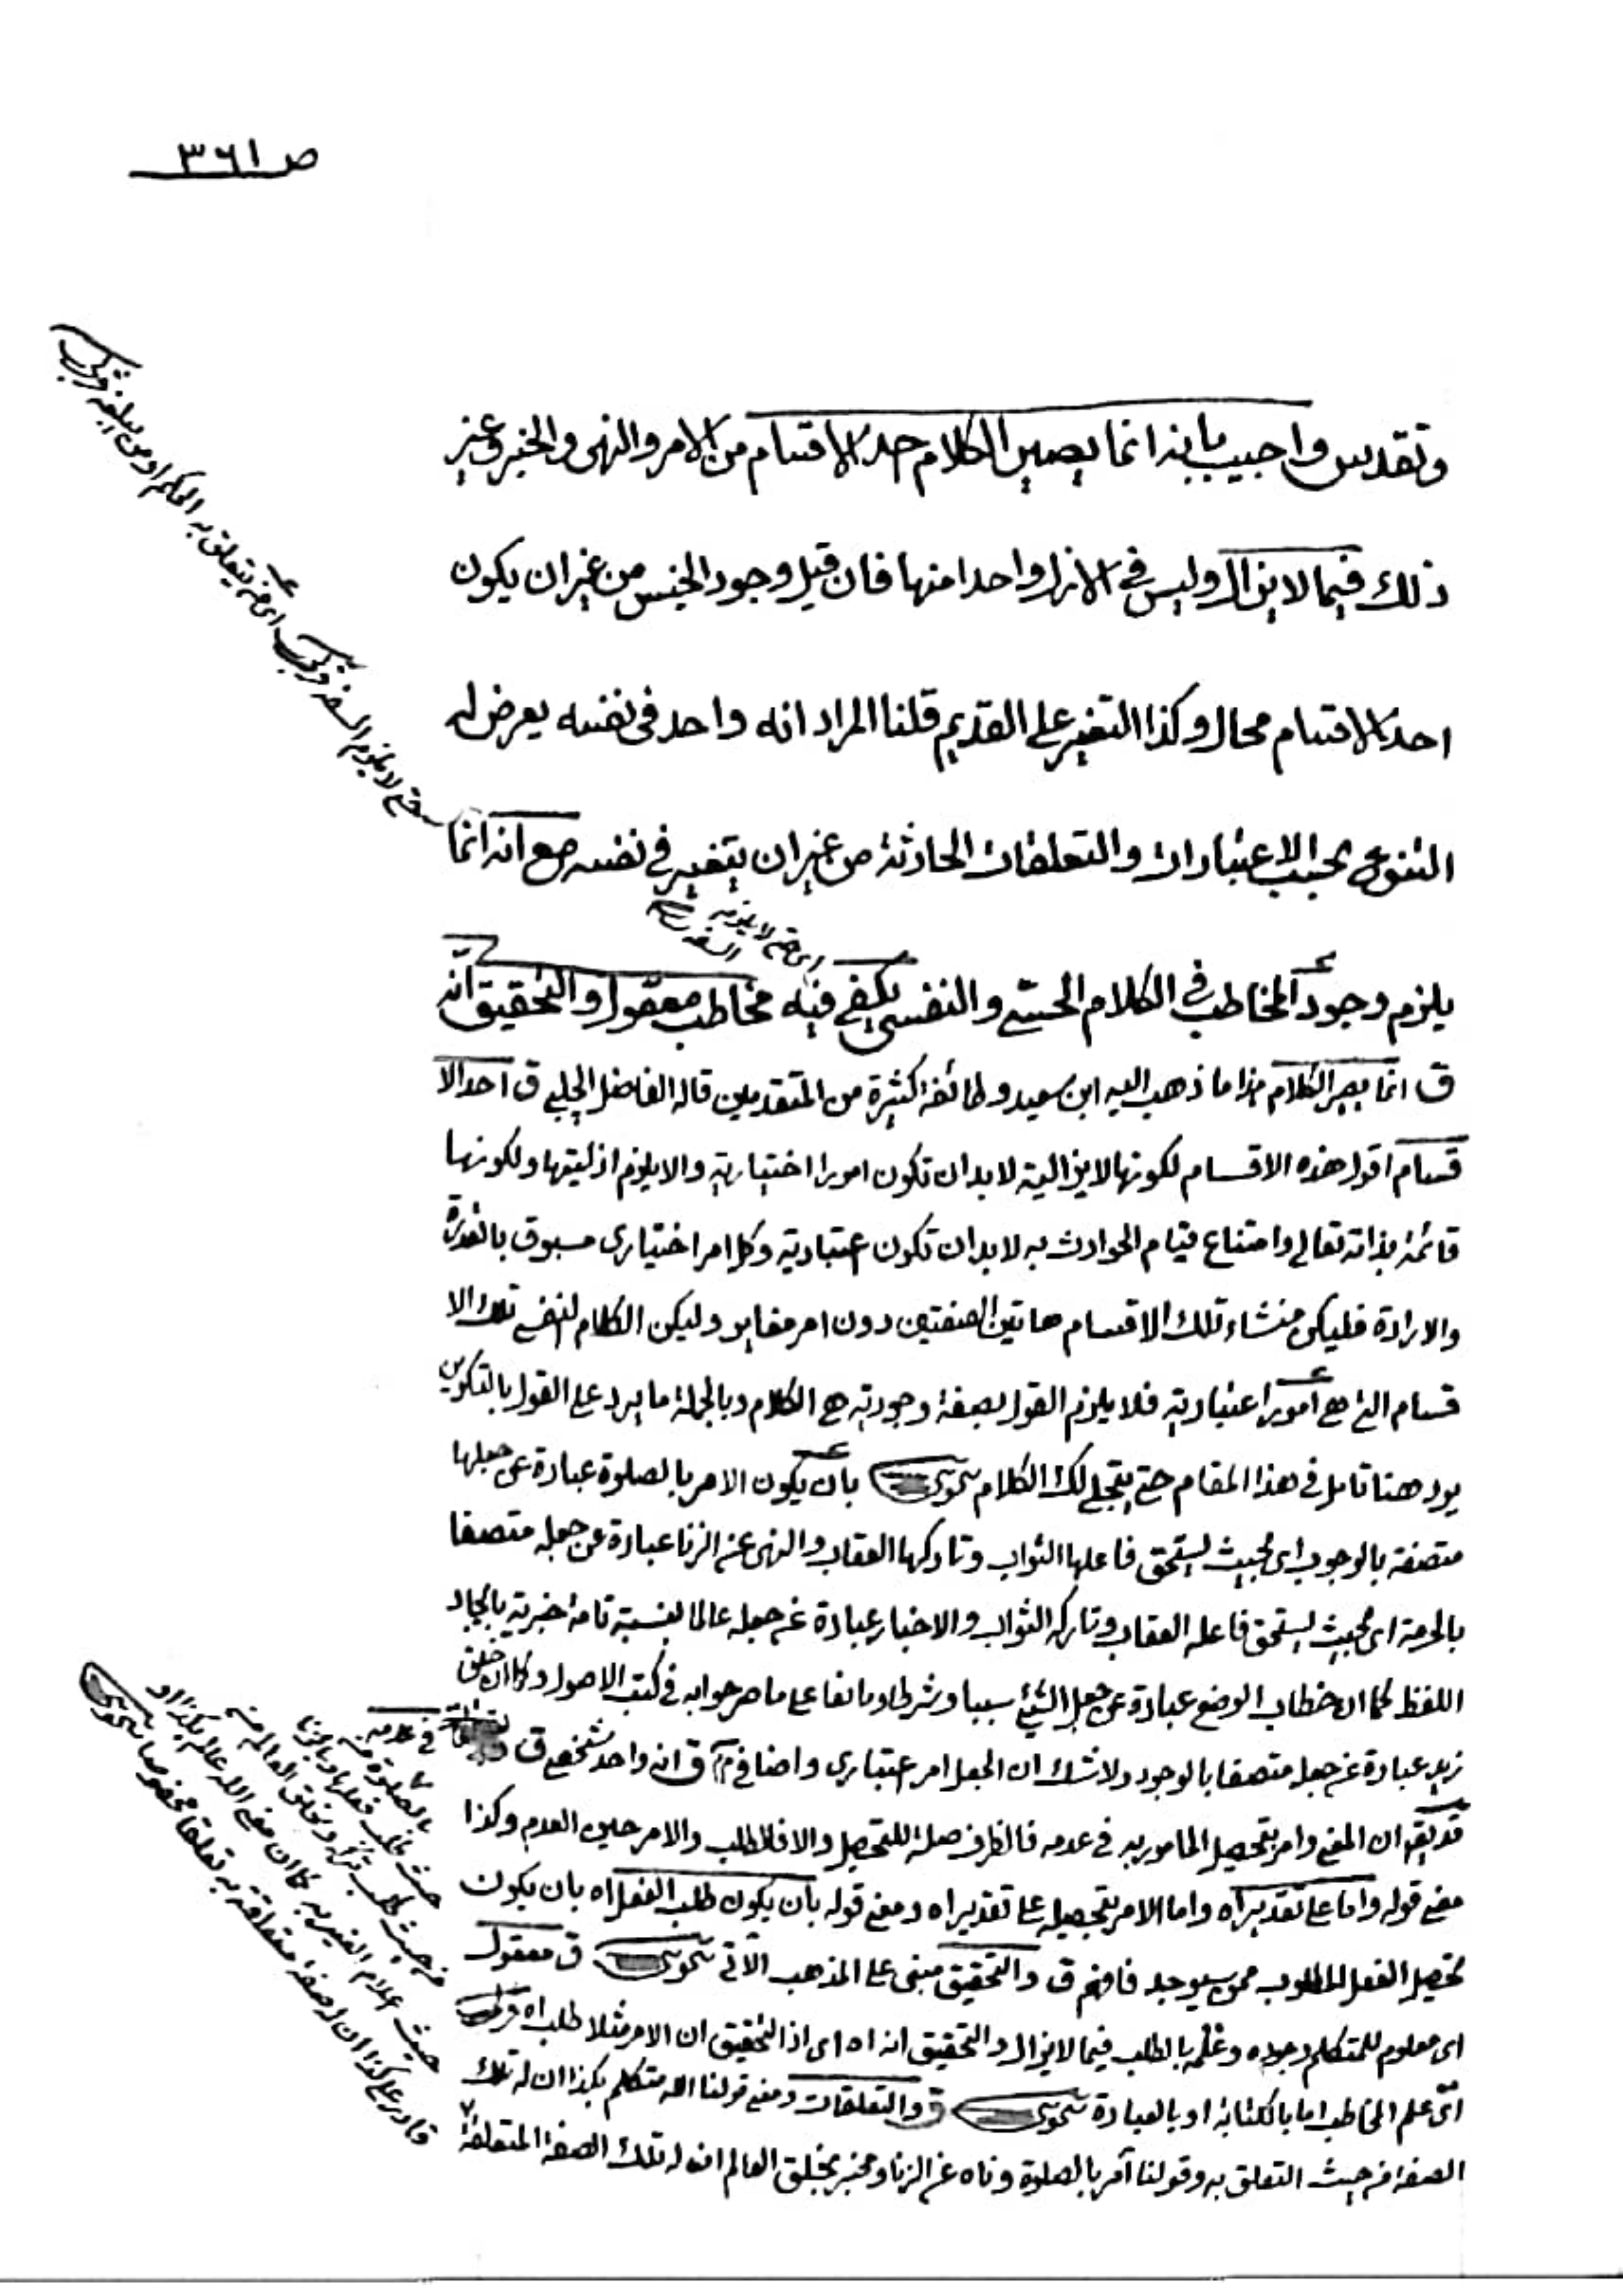 ص ٣٦١
وتقدس واجيب بانه انما يصير الكلام احد الاقسام من الامر والنهى والخبر وغير
ذلك فيما لايزال وليس فى الازل واحدا منها فان قيل وجود الجنس من غير ان يكون
احد الاقسام محال وكذا التغير على القديم قلنا المراد انه واحد فى نفسه يعرض له
التنوع بحسب الاعتبارات والتعلقات الحادثة من غير ان يتغير فى نفسه مع انه انما
اى حتى لا يلزم السفه
يلزم وجود المخاطب فى الكلام الحسّى والنفسى يكفى فيه مخاطب معقول والتحقيق انه
ق انما يصير الكلام هذا ما ذهب اليه ابن سعيد وطائفة كثيرة من المتقدمين قاله الفاضل الچلبى ق احد الا
قسام اقول هذه الاقسام لكونها لايزالية لابد ان تكون امورا اختيارية والا يلزم ازليتها ولكونها
قائمة بذاته تعالى وامتناع قيام الحوادث به لابد ان تكون اعتبارية وكل امر اختيارى مسبوق بالقدرة
والارادة فليكن منشاء تلك الاقسام هاتين الصفتين دون امر مغاير وليكن الكلام النفسى تلك الا
قسام التى هى امورا اعتبارية فلا يلزم القول بصفة وجودية هى الكلام وبالجملة ما يرد على القول بالتكوين
يرد هنا تامل فى هذا المقام حتى يتجلى لك الكلام بان يكون الامر بالصلوة عبادة عن جعلها
متصفة بالوجوب اى بحيث يستحق فاعلها الثواب وتاركها العقاب والنهى عن الزنا عبادة عن جعله متصفا
بالحرمة اى بحيث يستحق فاعله العقاب وتاركه الثواب والاخبار عبادة عن جعله عالما بنسبة تامة خبرية بايجاد
اللفظ كما ان خطاب الوضع عبادة عن جعل الشئ سببا وشرطا ومانعا على ما صرحوا به فى كتب الاصول وكما ان خلق
زيد عبادة عن جعله متصفا بالوجود ولاشك ان الجعل امر اعتبارى واضافى ق انه واحد شخصى ق فى عدمه
قديق ان المعنى وامر بتحصيل المامور به فى عدمه فالظرف صلة للتحصيل والا فالطلب والامر حين العدم وكذا
معنى قوله واما على تقديراه واما الامر بتحصيله على تقديراه ومعنى قوله بان يكون طلب الفعل اه بان يكون
تحصيل الفعل المطلوب ممن سيوجد فافهم ق والتحقيق مبنى على المذهب الآتى ق معقول
اى معلوم للمتكلم وجوده وعلمه بالطلب فيما لايزال والتحقيق انه اه اى اذ التحقيق ان الامر مثلا طلب اه
اى علم المخاطب اما بالكتابة او بالعبارة ق والتعلقات ومعنى قولنا الله متكلم بكذا ان له تلك
الصفة من حيث التعلق به وقولنا آمر بالصلوة وناه عن الزنا ومخبر بخلق العالم ان له تلك الصفة المتعلقة
بالصلوة من
حيث طلب فعلها وبالزنا
من حيث طلب تركه وبخلق العالم من
حيث اعلام الغير به كما ان معنى الله عالم بكذا او
قادر على كذا ان له صفة متعلقة به تعلقا مخصوصا
حتى لا يلزم السفه اى حتى يتعلق به الحكم او من يبلغه